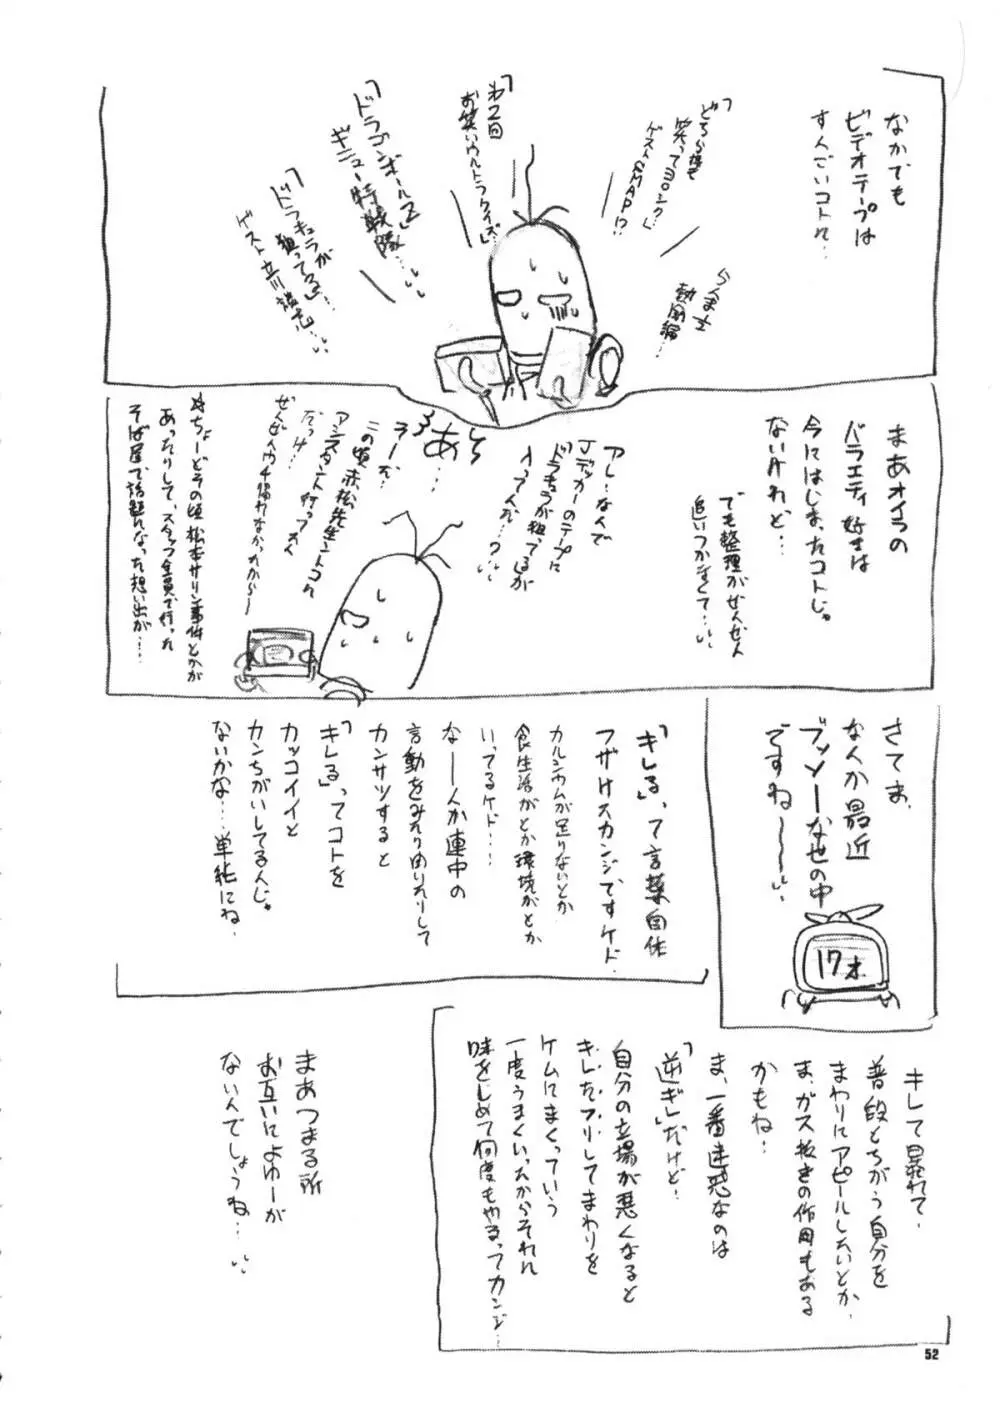 なかでも
ビデオテープは
すんごいコトに…
らんま½
熱闘編…
「どちら様も
笑ってヨロシク」
ゲストSMAP!?
「第2回
お笑いウルトラクイズ」
「ドラゴンボールZ」
ギニュー特戦隊……
「ドラキュラが
狙ってる」…
ゲスト立川談志…
まあオイラの
バラエティ好きは
今にはじまったコトじゃ
ないけれど…
でも整理がぜんぜん
追いつかなくて…
アレ…なんで
Jデッカーのテープに
「ドラキュラが狙ってる」が
入ってんだ…?
あそ
うーだ…
この頃赤松先生ントコに
アシスタント行ってん
だっけ…
ぜんぜんウチ帰れなかったから〜
ちょーどその頃松本サリン事件とかが
あったりして、スタッフ全員で行った
そば屋で話題になった想い出が…
さてま、
な人か最近
ブッソーな世の中
ですね〜〜
17才
「キレる」って言葉自体
フザけスカンジですケド、
カルシウムが足りないとか
食生活がとか環境がとか
いってるケド…
なーんか連中の
言動をみたりきいたりして
カンサツすると
「キレる」ってコトを
カッコイイと
カンちがいしてるんじゃ
ないかな…単純にね。
キレて暴れて、
普段とちがう自分を
まわりにアピールしたいとか、
ま、ガス抜きの作用もある
かもね…
ま、一番迷惑なのは
「逆ギレ」だけど…
自分の立場が悪くなると
キレたフリしてまわりを
ケムにまくっていう
一度うまくいったからそれに
味をしめて何度もやるってカンジ…
まあつまる所
お互いによゆーが
ないんでしょうね…
52